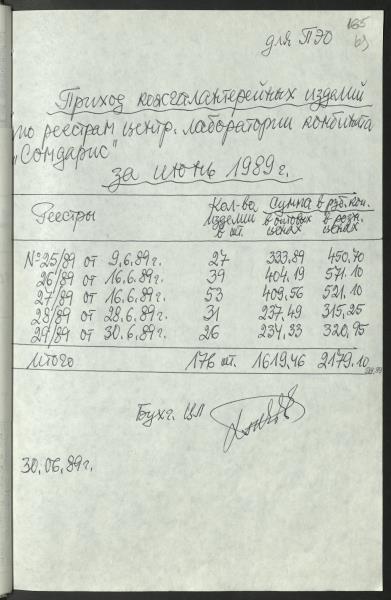 для ПЭО
165
63
Приход кожгалантерейных изделий
по реестрам центр. лаборатории комбината
"Сондарис"
за июнь 1989г.
Реестры Кол-во изделий в шт. Сумма в руб. коп.
в оптовых ценах в розн. ценах
№25/89 от 9.6.89г. 27 333,89 450.70
26/89 от 16.6.89г. 39 404.19 571.10
27/89 от 16.6.89г. 53 409,56 521,10
28/89 от 28.6.89г. 31 237,49 315,25
29/89 от 30.6.89г. 26 234,33 320,95
Итого 176 шт. 1619,46 2179.10
Бухг. ЦЛ
30.06.89г.